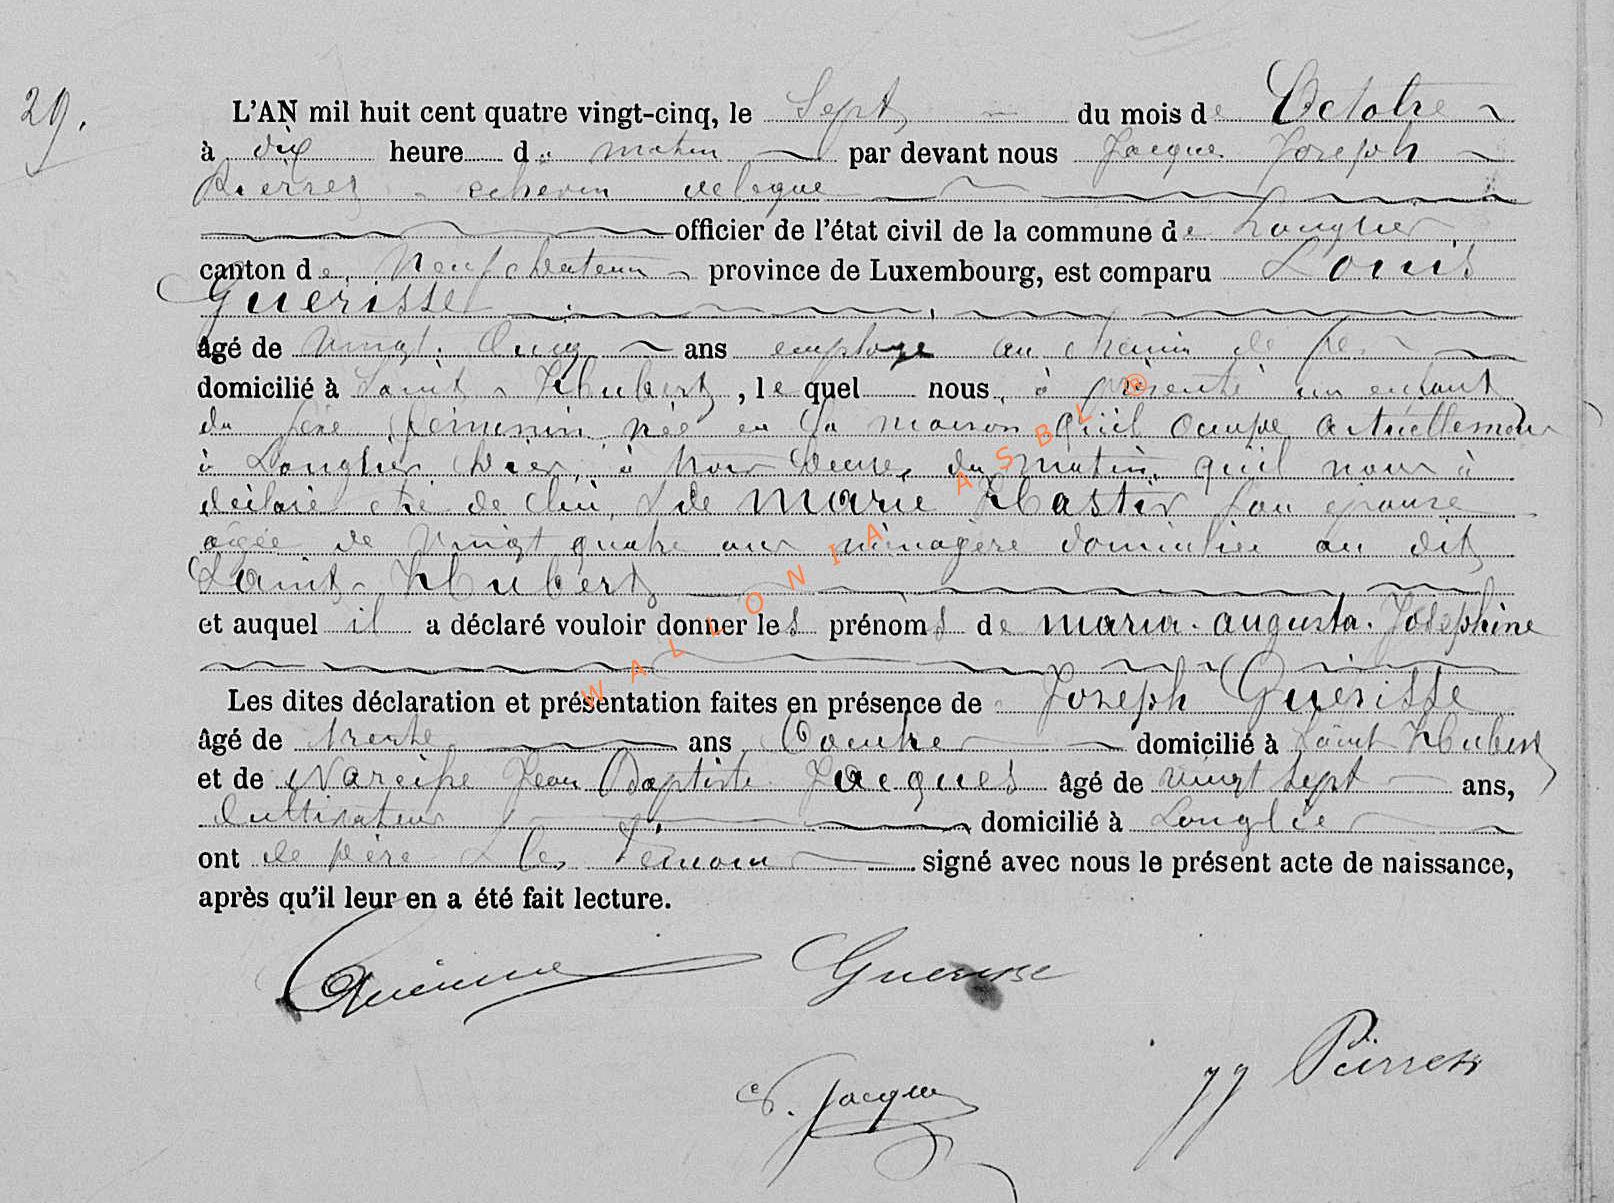 29.
L'AN mil huit cent quatre vingt-cinq, le Sept du mois de Octobre
à dix heure du matin par devant nous Jacque Joseph
Pierret echevin delegué
officier de l'état civil de la commune de Longlier
canton de Neufchateau province de Luxembourg, est comparu Louis
Guerisse
âgé de Vingt cinq ans employe au chemin de fer
domicilié à Saint Hubert, le quel nous à présenté un enfant
du sexe féminin née en la maison qu'il occupe actuellement
à Longlier hier, à heure du matin, qu'il nous à
déclaré etre de lui, & de Marie Hastir son épouse
agée de Vingt quatre ans ménagère domiciliée au dit
Saint Hubert
et auquel il a déclaré vouloir donner les prénoms de maria. augusta. Joséphine
Les dites déclaration et présentation faites en présence de Joseph Guerisse
âgé de trente ans domicilié à Saint Hubert
et de Narcisse Jean Baptiste Jacques âgé de vingt sept ans,
Cultivateur domicilié à Longlier
ont le père & les témoins signé avec nous le présent acte de naissance,
après qu'il leur en a été fait lecture.
Guerisse Guerisse
JJ Pierret
Jacques
WALLONIA ASBL ®